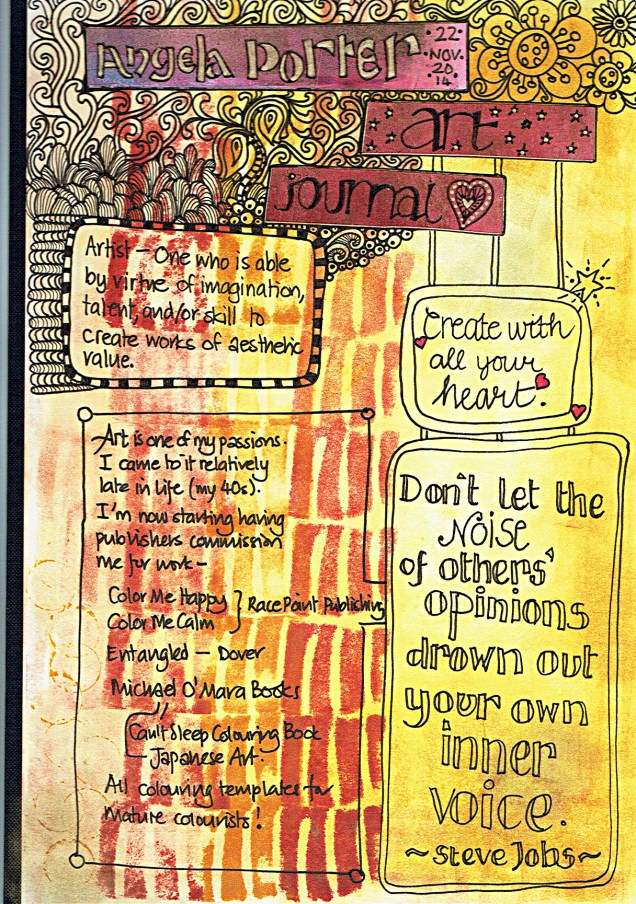 Angela Porter
22
NOV.
20
14.
art
journal
Artist – One who is able
by virtue of imagination,
talent, and/or skill to
create works of aesthetic
value.
Create with
all your
heart.
Art is one of my passions.
I came to it relatively
late in life (my 40s).
I'm now starting having
publishers commission
me for work –
Color Me Happy } Race Point Publishing
Color Me Calm
Entangled – Dover
Michael O'Mara Books
Can't Sleep Colouring Book
Japanese Art.
All colouring templates for
mature colourists!
Don't let the
NOISE
of others'
opinions
drown out
your own
inner
voice.
~Steve Jobs~